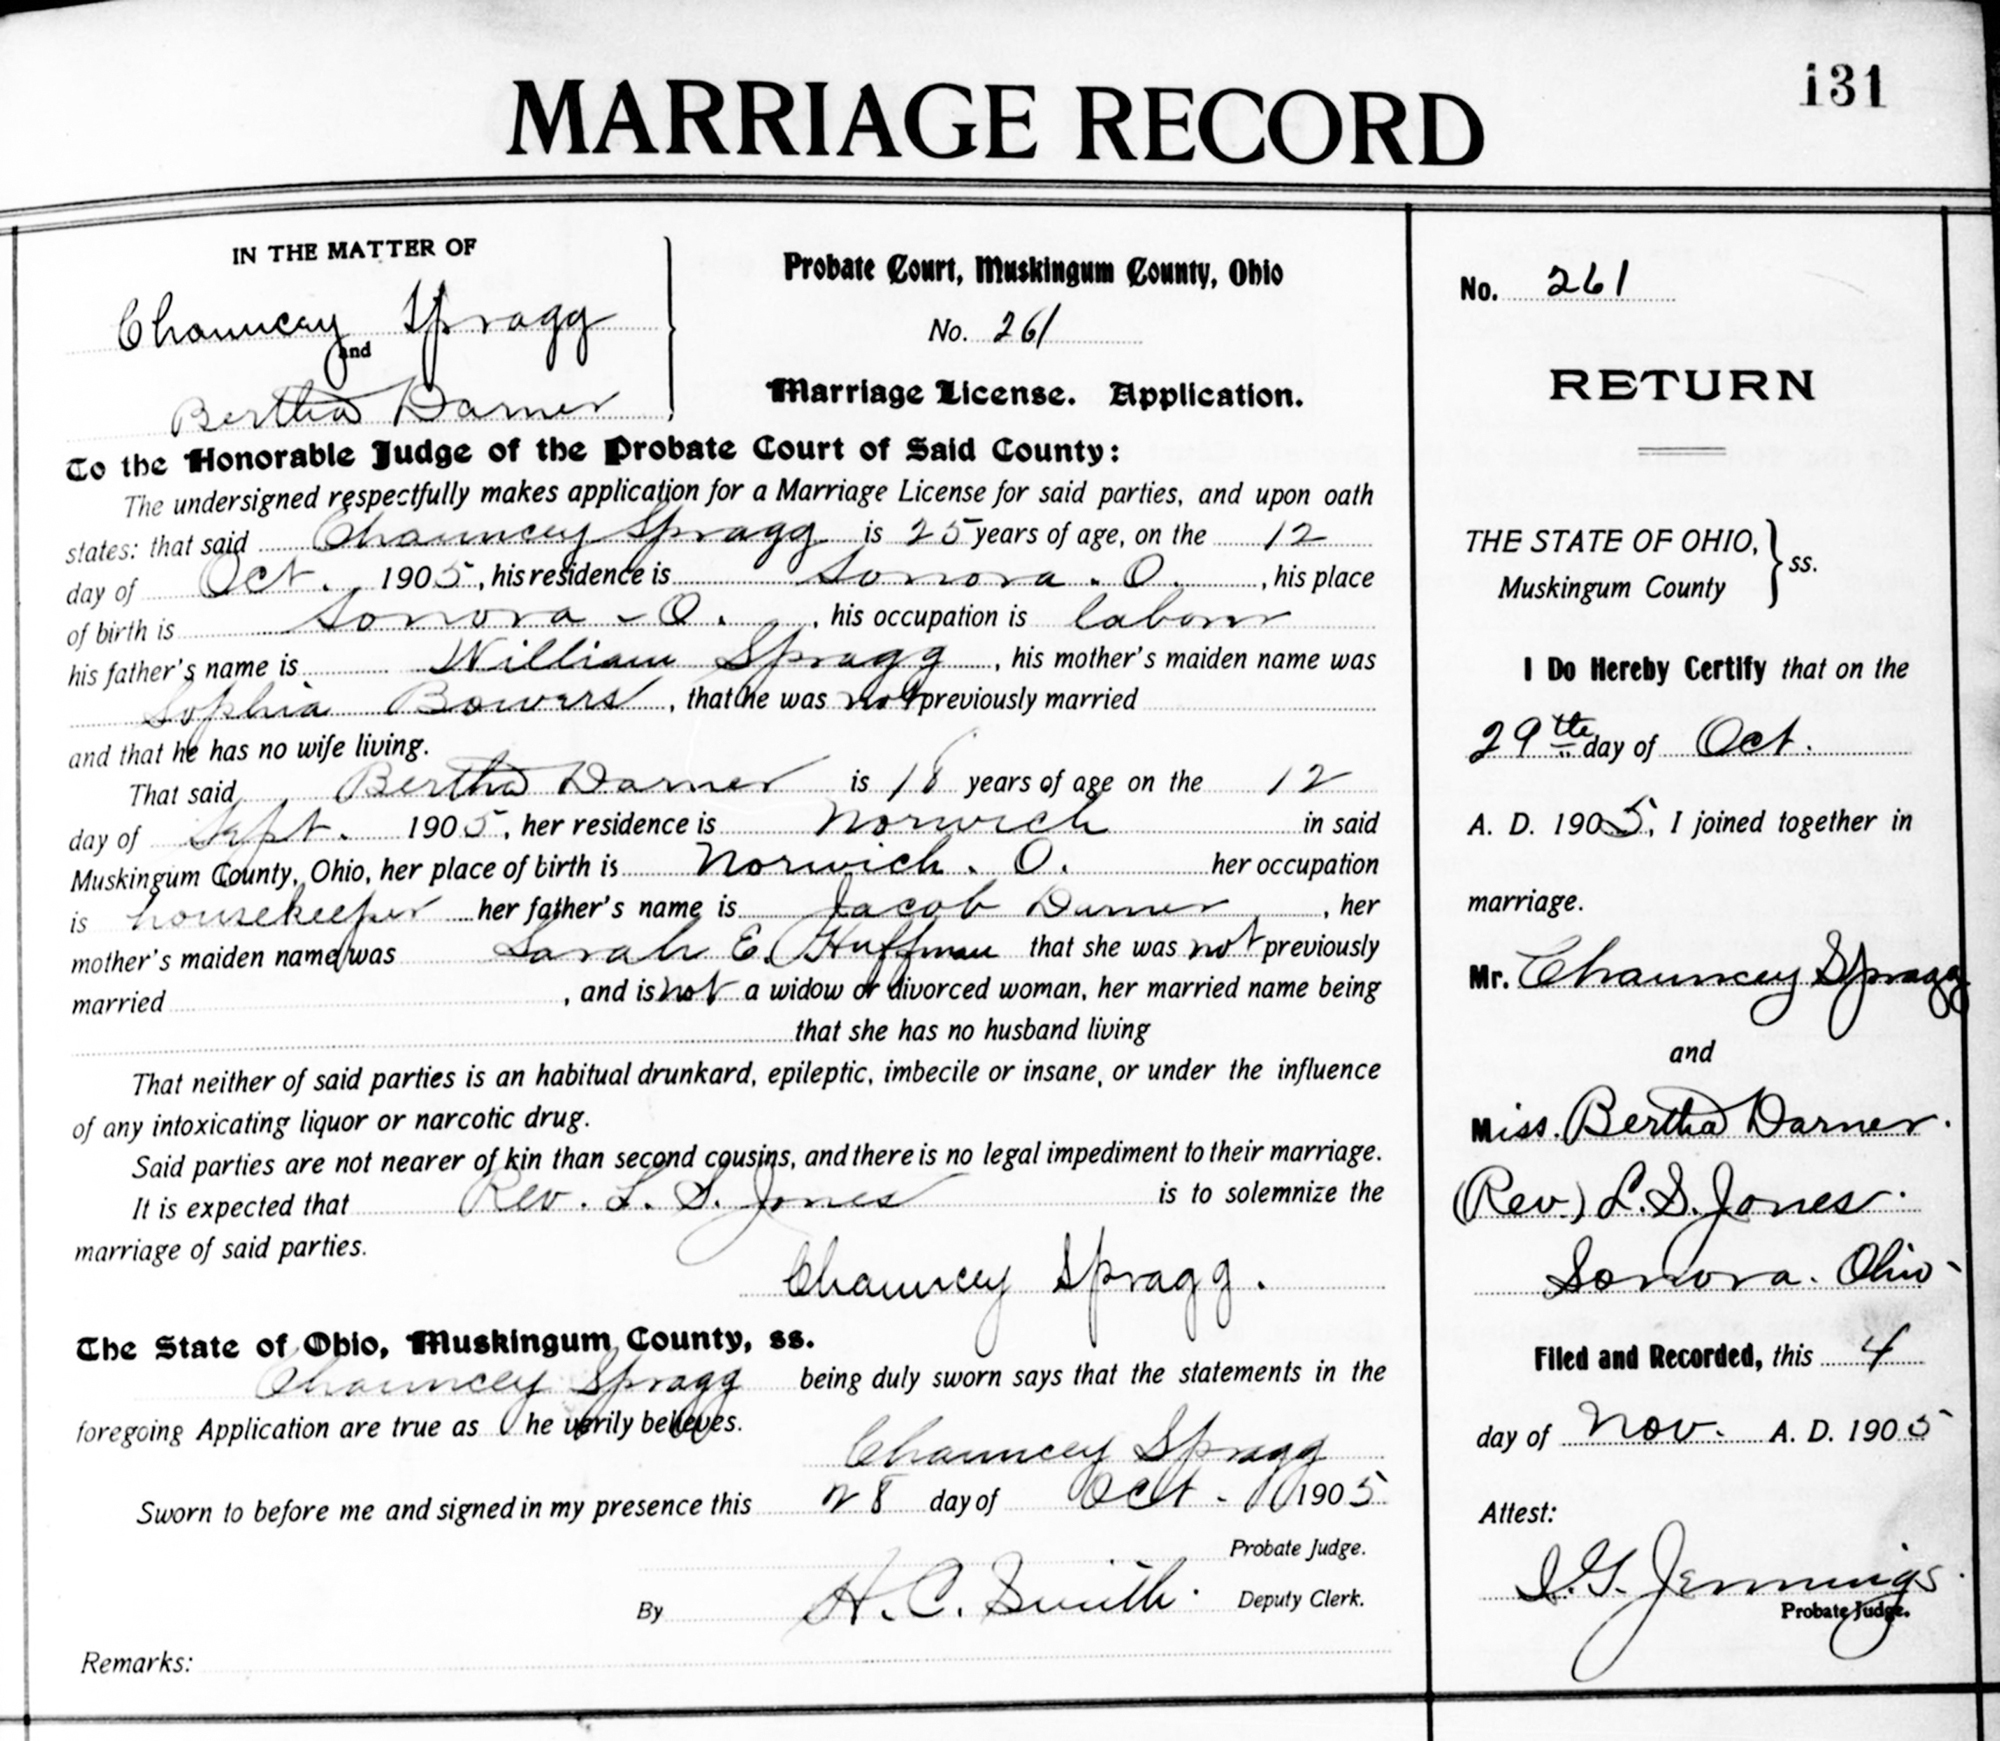 131
MARRIAGE RECORD
IN THE MATTER OF
Chauncey Spragg
and
Bertha Darner
Probate Court, Muskingum County, Ohio
No. 261
Marriage License. Application.
To the Honorable Judge of the Probate Court of Said County:
The undersigned respectfully makes application for a Marriage License for said parties, and upon oath
states: that said Chauncey Spragg is 25 years of age, on the 12
day of Oct. 1905, his residence is Sonora. O., his place
of birth is Sonora - O., his occupation is labor
his father's name is William Spragg, his mother's maiden name was
Sophia Bowers, that he was not previously married
and that he has no wife living.
That said Bertha Darner is 18 years of age on the 12
day of Sept. 1905, her residence is Norwich in said
Muskingum County, Ohio, her place of birth is Norwich. O. her occupation
is housekeeper her father's name is Jacob Darner, her
mother's maiden name was Sarah E. Huffman that she was not previously
married , and is not a widow or divorced woman, her married name being
that she has no husband living
That neither of said parties is an habitual drunkard, epileptic, imbecile or insane, or under the influence
of any intoxicating liquor or narcotic drug.
Said parties are not nearer of kin than second cousins, and there is no legal impediment to their marriage.
It is expected that Rev. L. S. Jones is to solemnize the
marriage of said parties.
Chauncey Spragg.
The State of Ohio, Muskingum County, ss.
Chauncey Spragg being duly sworn says that the statements in the
foregoing Application are true as he verily believes.
Chauncey Spragg
Sworn to before me and signed in my presence this 28 day of Oct. 1905
Probate Judge.
By H. C. Smith. Deputy Clerk.
Remarks:
No. 261
RETURN
THE STATE OF OHIO,
Muskingum County
ss.
I Do Hereby Certify that on the
29th day of Oct.
A. D. 1905, I joined together in
marriage.
Mr. Chauncey Spragg
and
Miss. Bertha Darner.
(Rev.) L. S. Jones.
Sonora. Ohio-
Filed and Recorded, this 4
day of Nov. A. D. 1905
Attest:
I. G. Jennings.
Probate Judge.